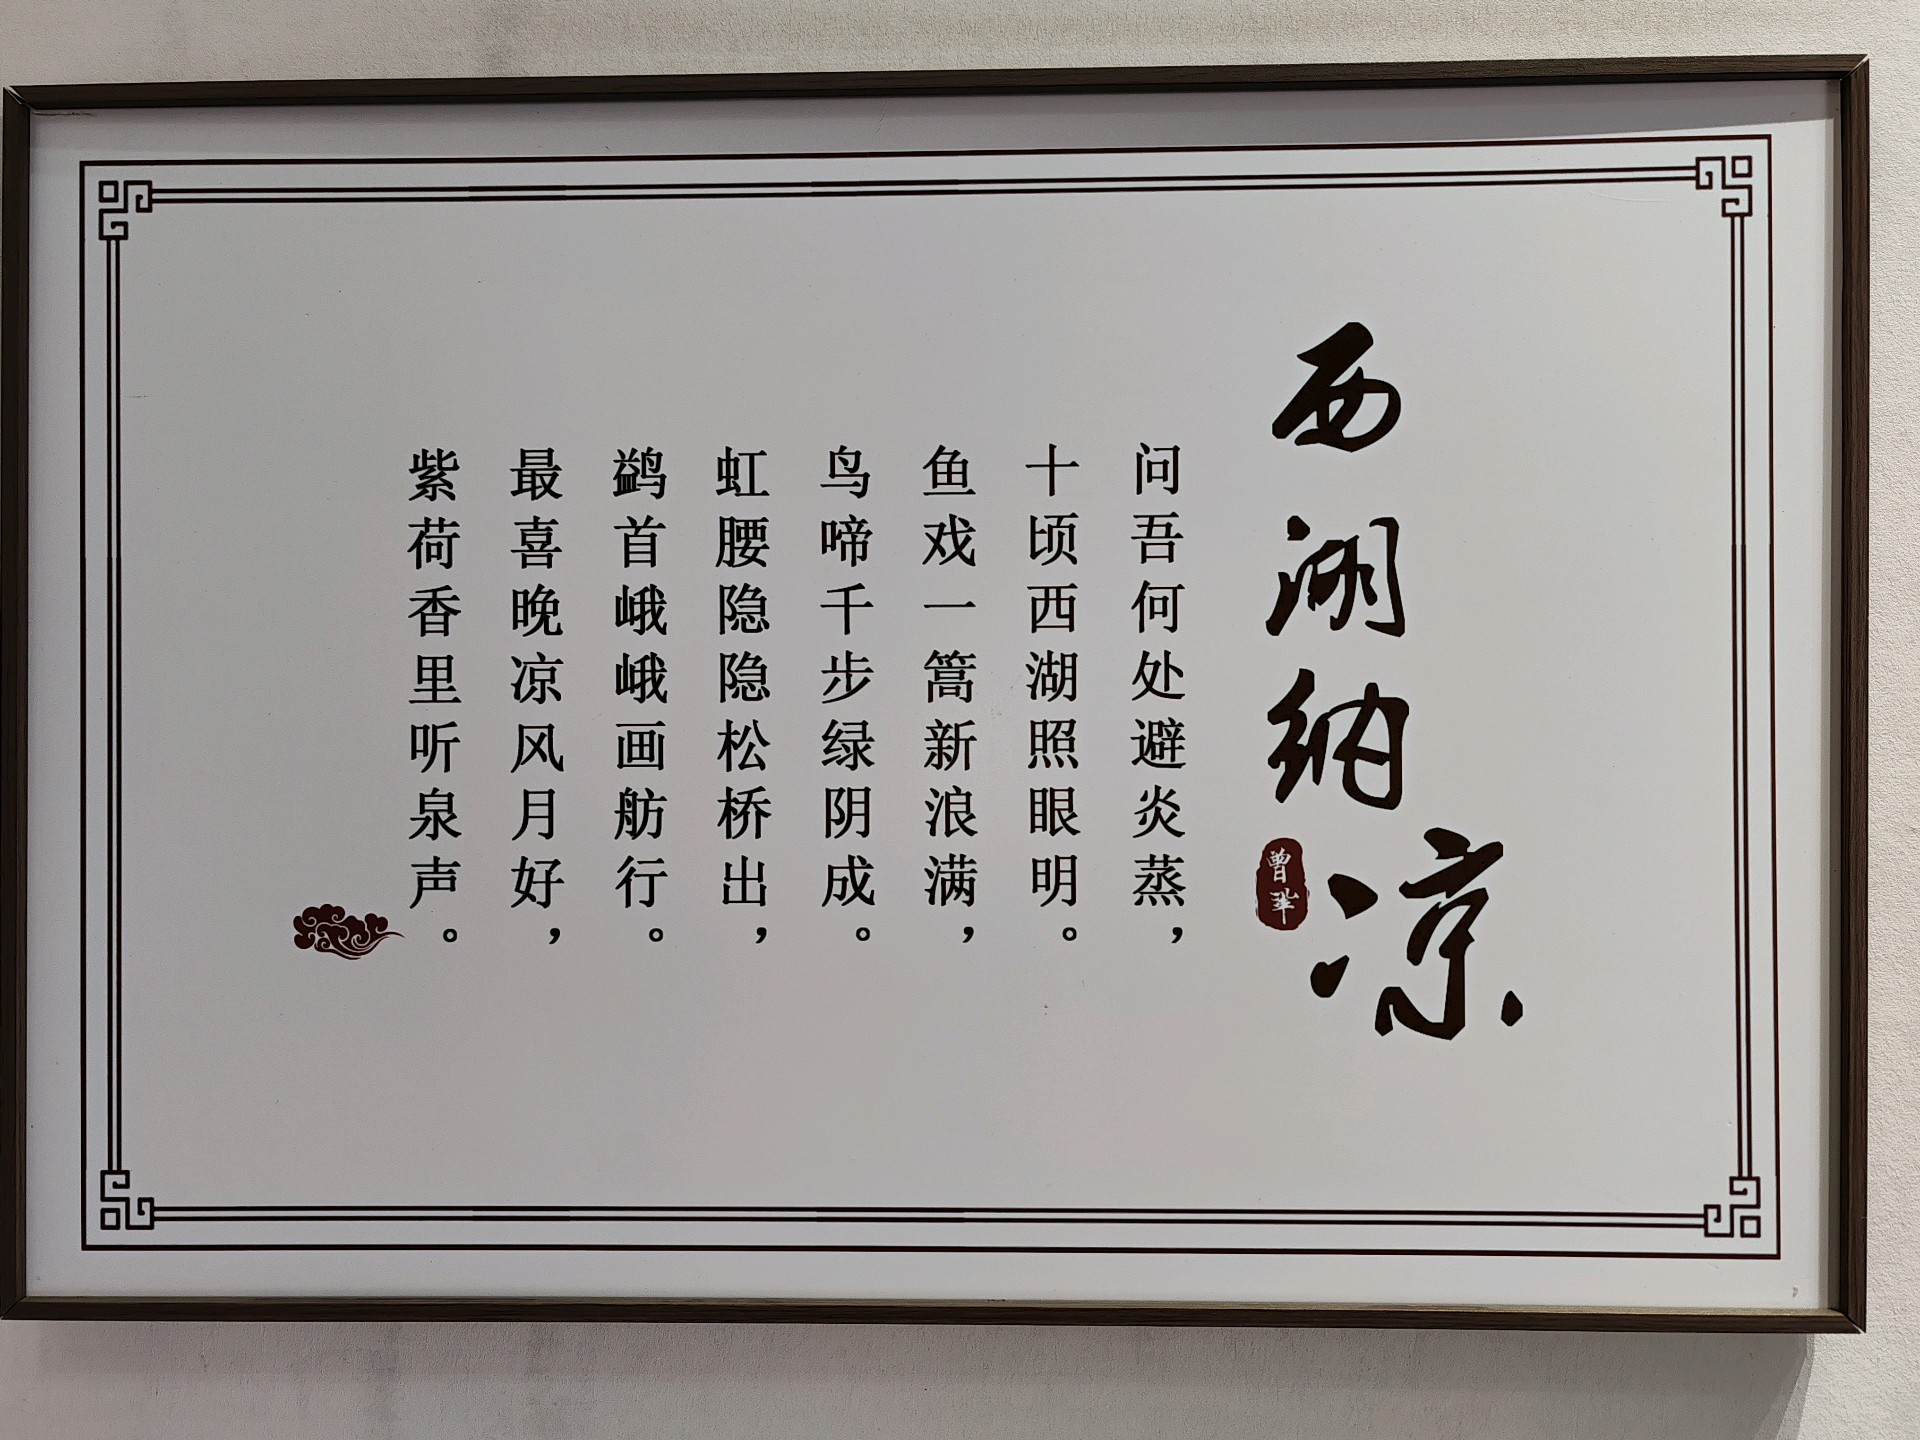 西湖纳凉
曾巩
问吾何处避炎蒸，
十顷西湖照眼明。
鱼戏一篙新浪满，
鸟啼千步绿阴成。
虹腰隐隐松桥出，
鹢首峨峨画舫行。
最喜晚凉风月好，
紫荷香里听泉声。